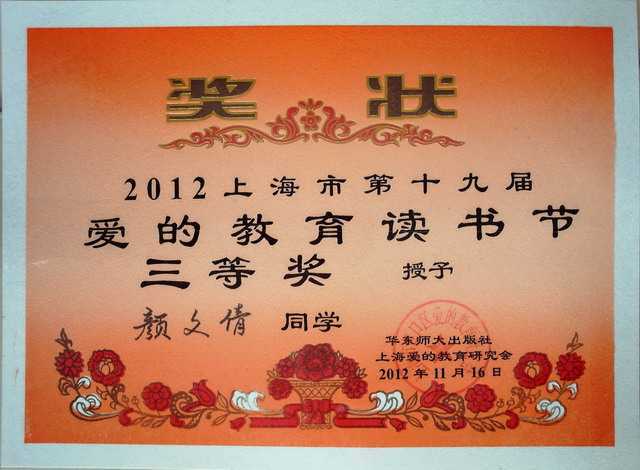 奖状
2012上海市第十九届
爱的教育读书节
三等奖 授予
颜文倩 同学
华东师大出版社
上海爱的教育研究会
2012年11月16日